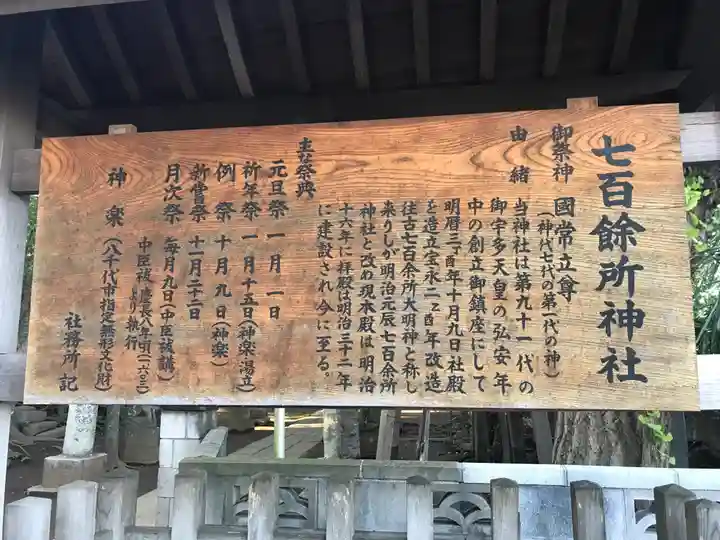 七百餘所神社
御祭神 國常立尊
(神代七代の第一代の神)
由緒
当神社は第九十一代の
御宇多天皇の弘安年
中の創立御鎮座にして
明暦三丁酉年十月九日社殿
を造立宝永二乙酉年改造
往古七百余所大明神と称し
来りしが明治元辰七百余所
神社と改め現本殿は明治
十六年に拝殿は明治三十二年
に建設され今に至る。
主な祭典
元旦祭 一月一日
祈年祭 一月十五日(神楽湯立)
例祭 十月九日(神楽)
新嘗祭 十一月二十三日
月次祭 毎月九日(中臣祓講)
中臣祓・慶長八年頃(一六〇三)
より執行
神楽(八千代市指定無形文化財)
社務所記